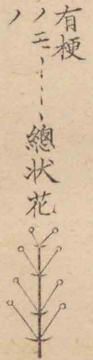 有梗
ノモノ……總狀花